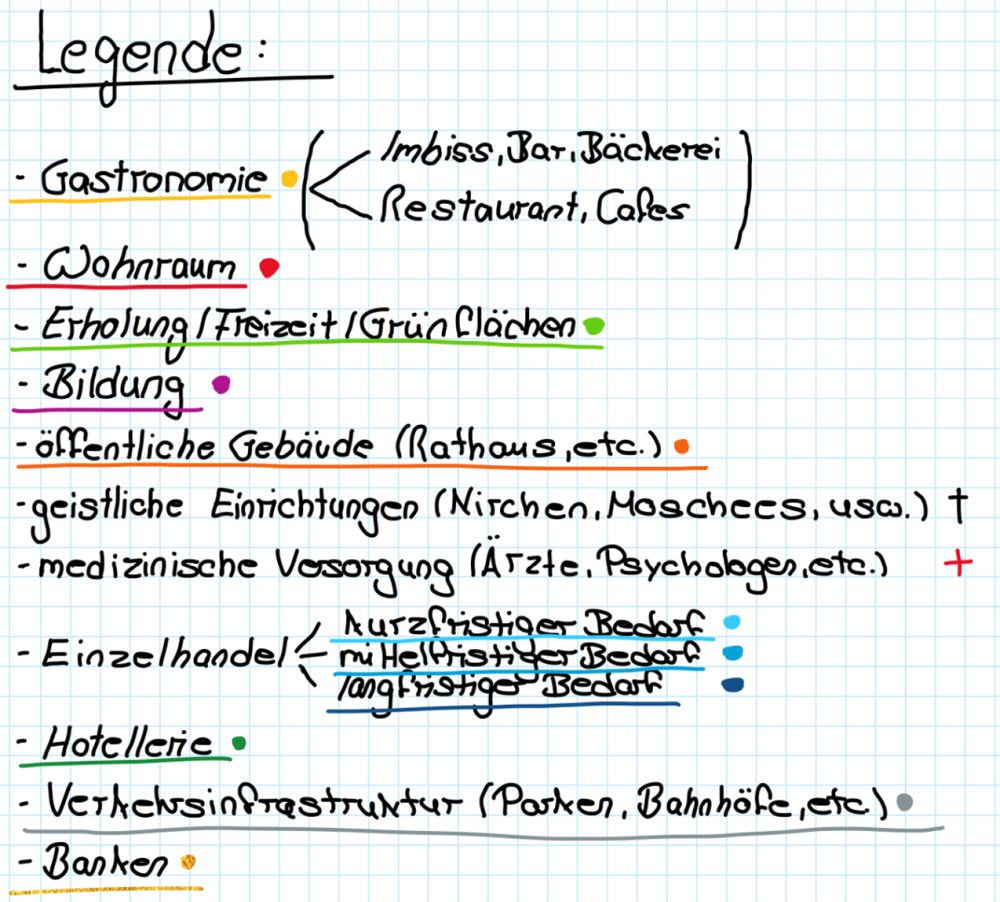 Legende:
- Gastronomie ( Imbiss, Bar, Bäckerei
Restaurant, Cafes )
- Wohnraum
- Erholung/Freizeit/Grünflächen
- Bildung
- öffentliche Gebäude (Rathaus, etc.)
- geistliche Einrichtungen (Kirchen, Moschees, usw.) †
- medizinische Versorgung (Ärzte, Psychologen, etc.) +
- Einzelhandel
kurzfristiger Bedarf
mittelfristiger Bedarf
langfristiger Bedarf
- Hotellerie
- Verkehrsinfrastruktur (Parken, Bahnhöfe, etc.)
- Banken